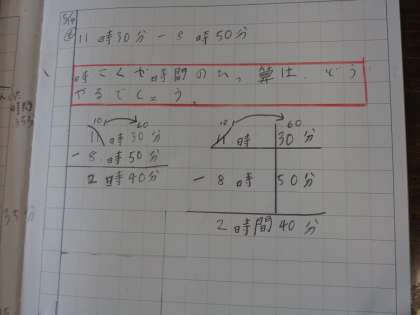 5/14
④ 11時30分－8時50分
時こくや時間のひっ算は、どう
やるでしょう。
10 60
11時30分
－8時50分
2時40分
10 60
11時 30分
－8時 50分
2時間40分